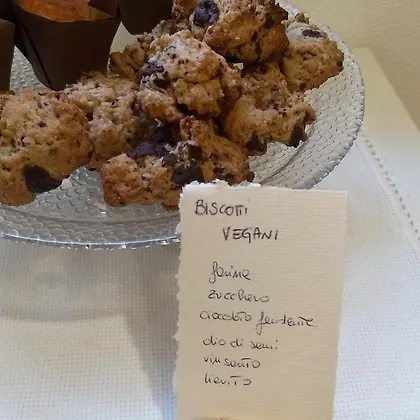 BISCOTTI
VEGANI
farina
zucchero
cioccolato fondente
olio di semi
vin santo
lievito